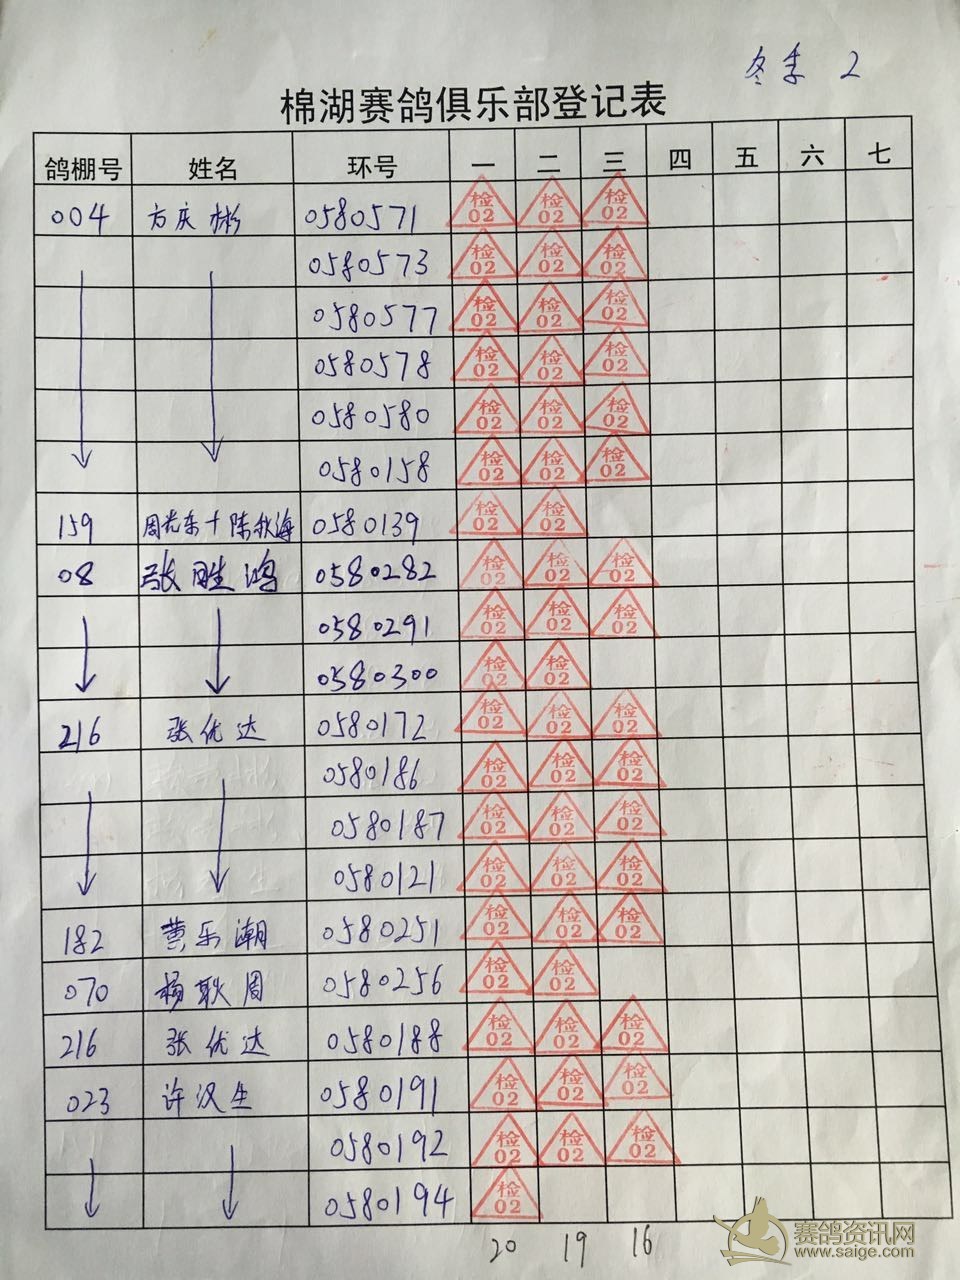 冬季 2
棉湖赛鸽俱乐部登记表
鸽棚号 姓名 环号 一 二 三 四 五 六 七
004 方庆彬 0580571 检02 检02 检02
0580573 检02 检02 检02
0580577 检02 检02 检02
0580578 检02 检02 检02
0580580 检02 检02 检02
0580158 检02 检02 检02
159 周光东+陈秋海 0580139 检02 检02
08 张胜鸿 0580282 检02 检02 检02
0580291 检02 检02 检02
0580300 检02 检02
216 张优达 0580172 检02 检02 检02
0580186 检02 检02 检02
0580187 检02 检02 检02
0580121 检02 检02 检02
182 黄乐潮 0580251 检02 检02 检02
070 杨耿周 0580256 检02 检02
216 张优达 0580188 检02 检02 检02
023 许汉生 0580191 检02 检02 检02
0580192 检02 检02 检02
0580194 检02
20 19 16
赛鸽资讯网
www.saige.com